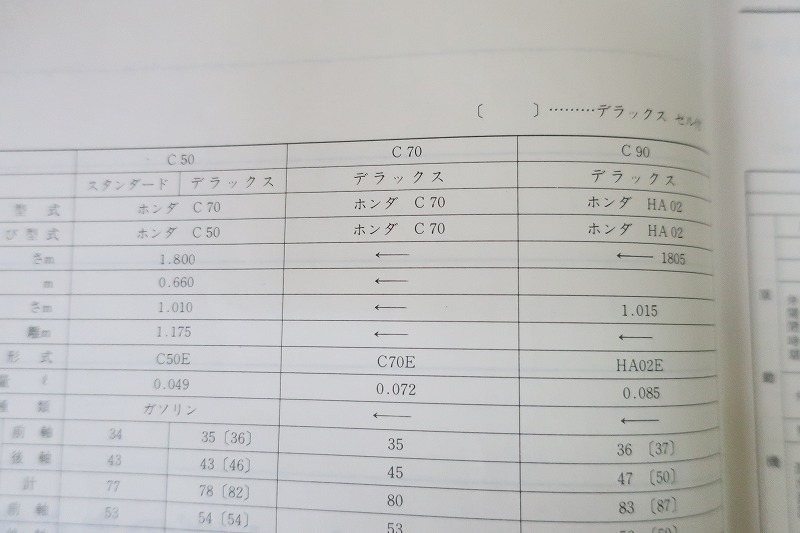 〔　　〕………デラックス セル付
C50 C70 C90
スタンダード デラックス デラックス デラックス
型式 ホンダ C70 ホンダ C70 ホンダ HA02
び型式 ホンダ C50 ホンダ C70 ホンダ HA02
さm 1.800 ← ← 1805
m 0.660 ←
さm 1.010 ← 1.015
離m 1.175 ← ←
形式 C50E C70E HA02E
量 ℓ 0.049 0.072 0.085
種類 ガソリン ← ←
前軸 34 35〔36〕 35 36〔37〕
後軸 43 43〔46〕 45 47〔50〕
計 77 78〔82〕 80 83〔87〕
前軸 53 54〔54〕 53
機